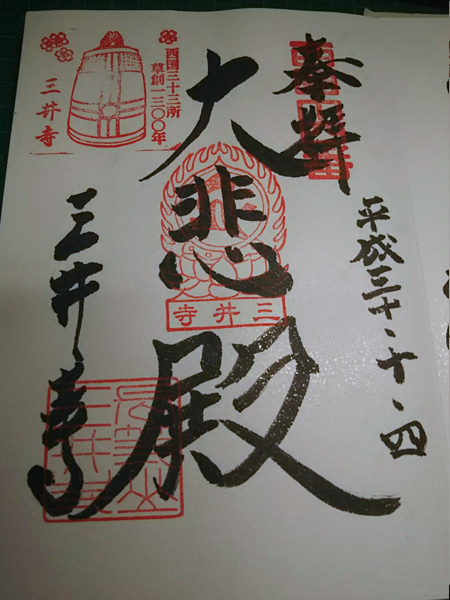 奉拝
平成三十・十・四
大悲殿
三井寺
西国三十三所
草創一三〇〇年
三井寺
三井寺